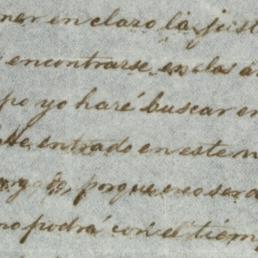 ner en claro la just
encontrarse en las a
po yo haré buscar en
entrado en este n
porque en o ser d
no podrá con el tiem